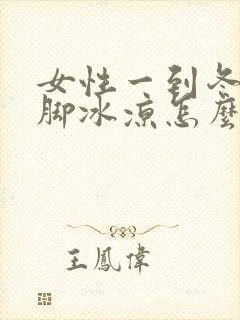 女性一到冬
脚冰凉怎麽
王鳳偉